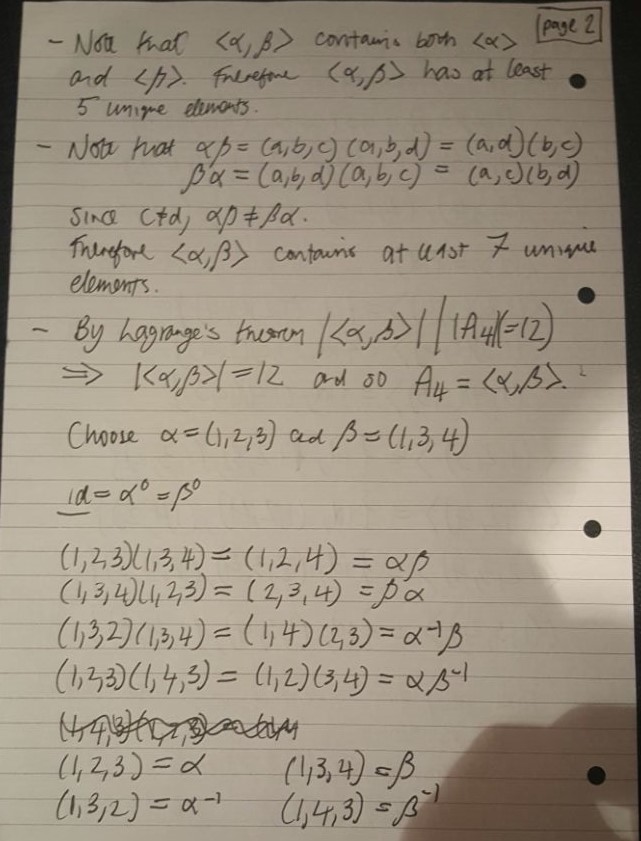 page 2
- Note that <α, β> contains both <α>
and <β>. Therefore <α, β> has at least
5 unique elements.
- Note that αβ = (a,b,c)(a,b,d) = (a,d)(b,c)
βα = (a,b,d)(a,b,c) = (a,c)(b,d)
Since c≠d, αβ ≠ βα.
Therefore <α, β> contains at least 7 unique
elements.
- By Lagrange's theorem |<α, β>| | |A₄|(=12)
⇒ |<α, β>| = 12 and so A₄ = <α, β>.
Choose α = (1,2,3) and β = (1,3,4)
id = α⁰ = β⁰
(1,2,3)(1,3,4) = (1,2,4) = αβ
(1,3,4)(1,2,3) = (2,3,4) = βα
(1,3,2)(1,3,4) = (1,4)(2,3) = α⁻¹β
(1,2,3)(1,4,3) = (1,2)(3,4) = αβ⁻¹
(1,2,3) = α (1,3,4) = β
(1,3,2) = α⁻¹ (1,4,3) = β⁻¹